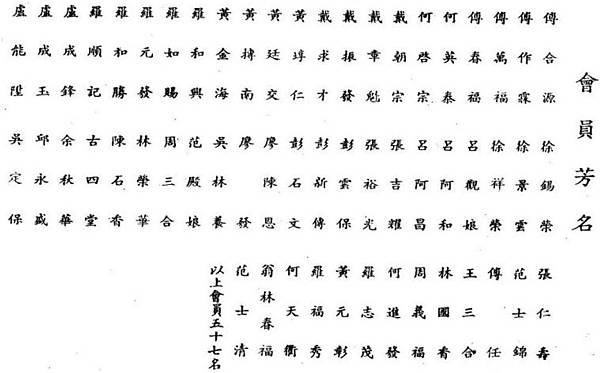 會員芳名
傅合源 徐錫榮 張仁壽
傅作霖 徐景雲 范士錦
傅萬福 徐祥榮 傅任
傅春福 呂觀娘 王三合
何英泰 呂阿和 林國香
何啓宗 呂阿昌 周義福
戴朝宗 張吉耀 何進發
戴章魁 張裕光 羅志茂
戴振發 彭雲保 黃元彰
戴求才 彭新傳 羅福秀
黃仁 彭石文 何天衢
黃廷交 廖陳恩 翁林春福
黃南 廖發 范士清
黃金海 吳林養 以上會員五十七名
羅和興 范殿娘
羅如賜 周三合
羅元發 林榮華
羅和勝 陳石香
羅順記 古四堂
盧成鋒 余秋華
盧成玉 邱永盛
盧龍陞 吳定保